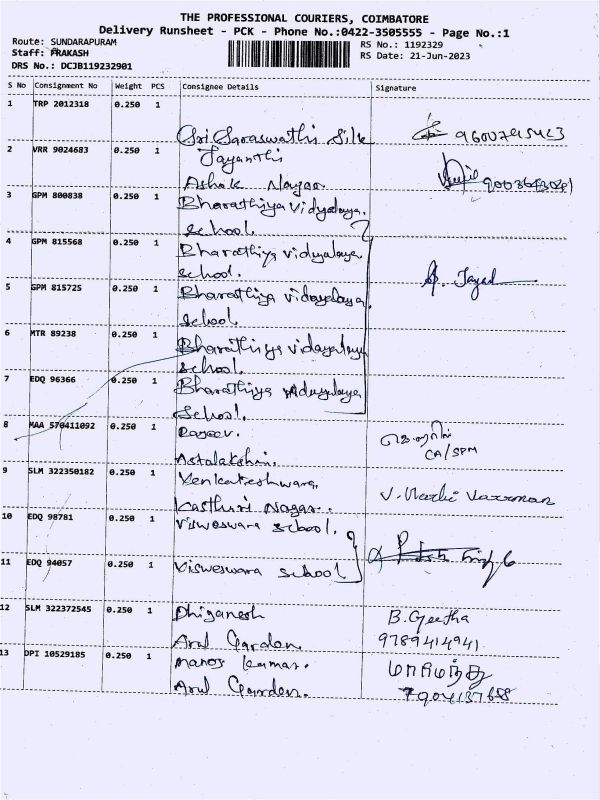 THE PROFESSIONAL COURIERS, COIMBATORE
Delivery Runsheet - PCK - Phone No.:0422-3505555 - Page No.:1
Route: SUNDARAPURAM
Staff: PRAKASH
DRS No.: DCJB119232901
RS No.: 1192329
RS Date: 21-Jun-2023
S No Consignment No Weight PCS Consignee Details Signature
1 TRP 2012318 0.250 1
Sri Saraswathi Silk 9600795423
2 VRR 9024683 0.250 1 Jayanthi
Ashok Nagar
3 GPM 800838 0.250 1 Bharathiya Vidyalaya.
School.
4 GPM 815568 0.250 1 Bharathiya vidyalaya
School.
5 GPM 815725 0.250 1 Bharathiya vidayalaya
School.
6 MTR 89238 0.250 1 Bharathiya vidayalaya
School.
7 EDQ 96366 0.250 1 Bharathiya vidayalaya
School.
8 MAA 570411092 0.250 1 Rajeev.
Astalakshmi. CA/SPM
9 SLM 322350182 0.250 1 Venkateshwara,
Kasthuri Nagar.
10 EDQ 98781 0.250 1 Visweswara School.
11 EDQ 94057 0.250 1 Visweswara School
12 SLM 322372545 0.250 1 Dhiganesh B. Geetha
Arul Garden. 9789414941
13 DPI 10529185 0.250 1 Manoj Kumar.
Arul Garden. 7904137658